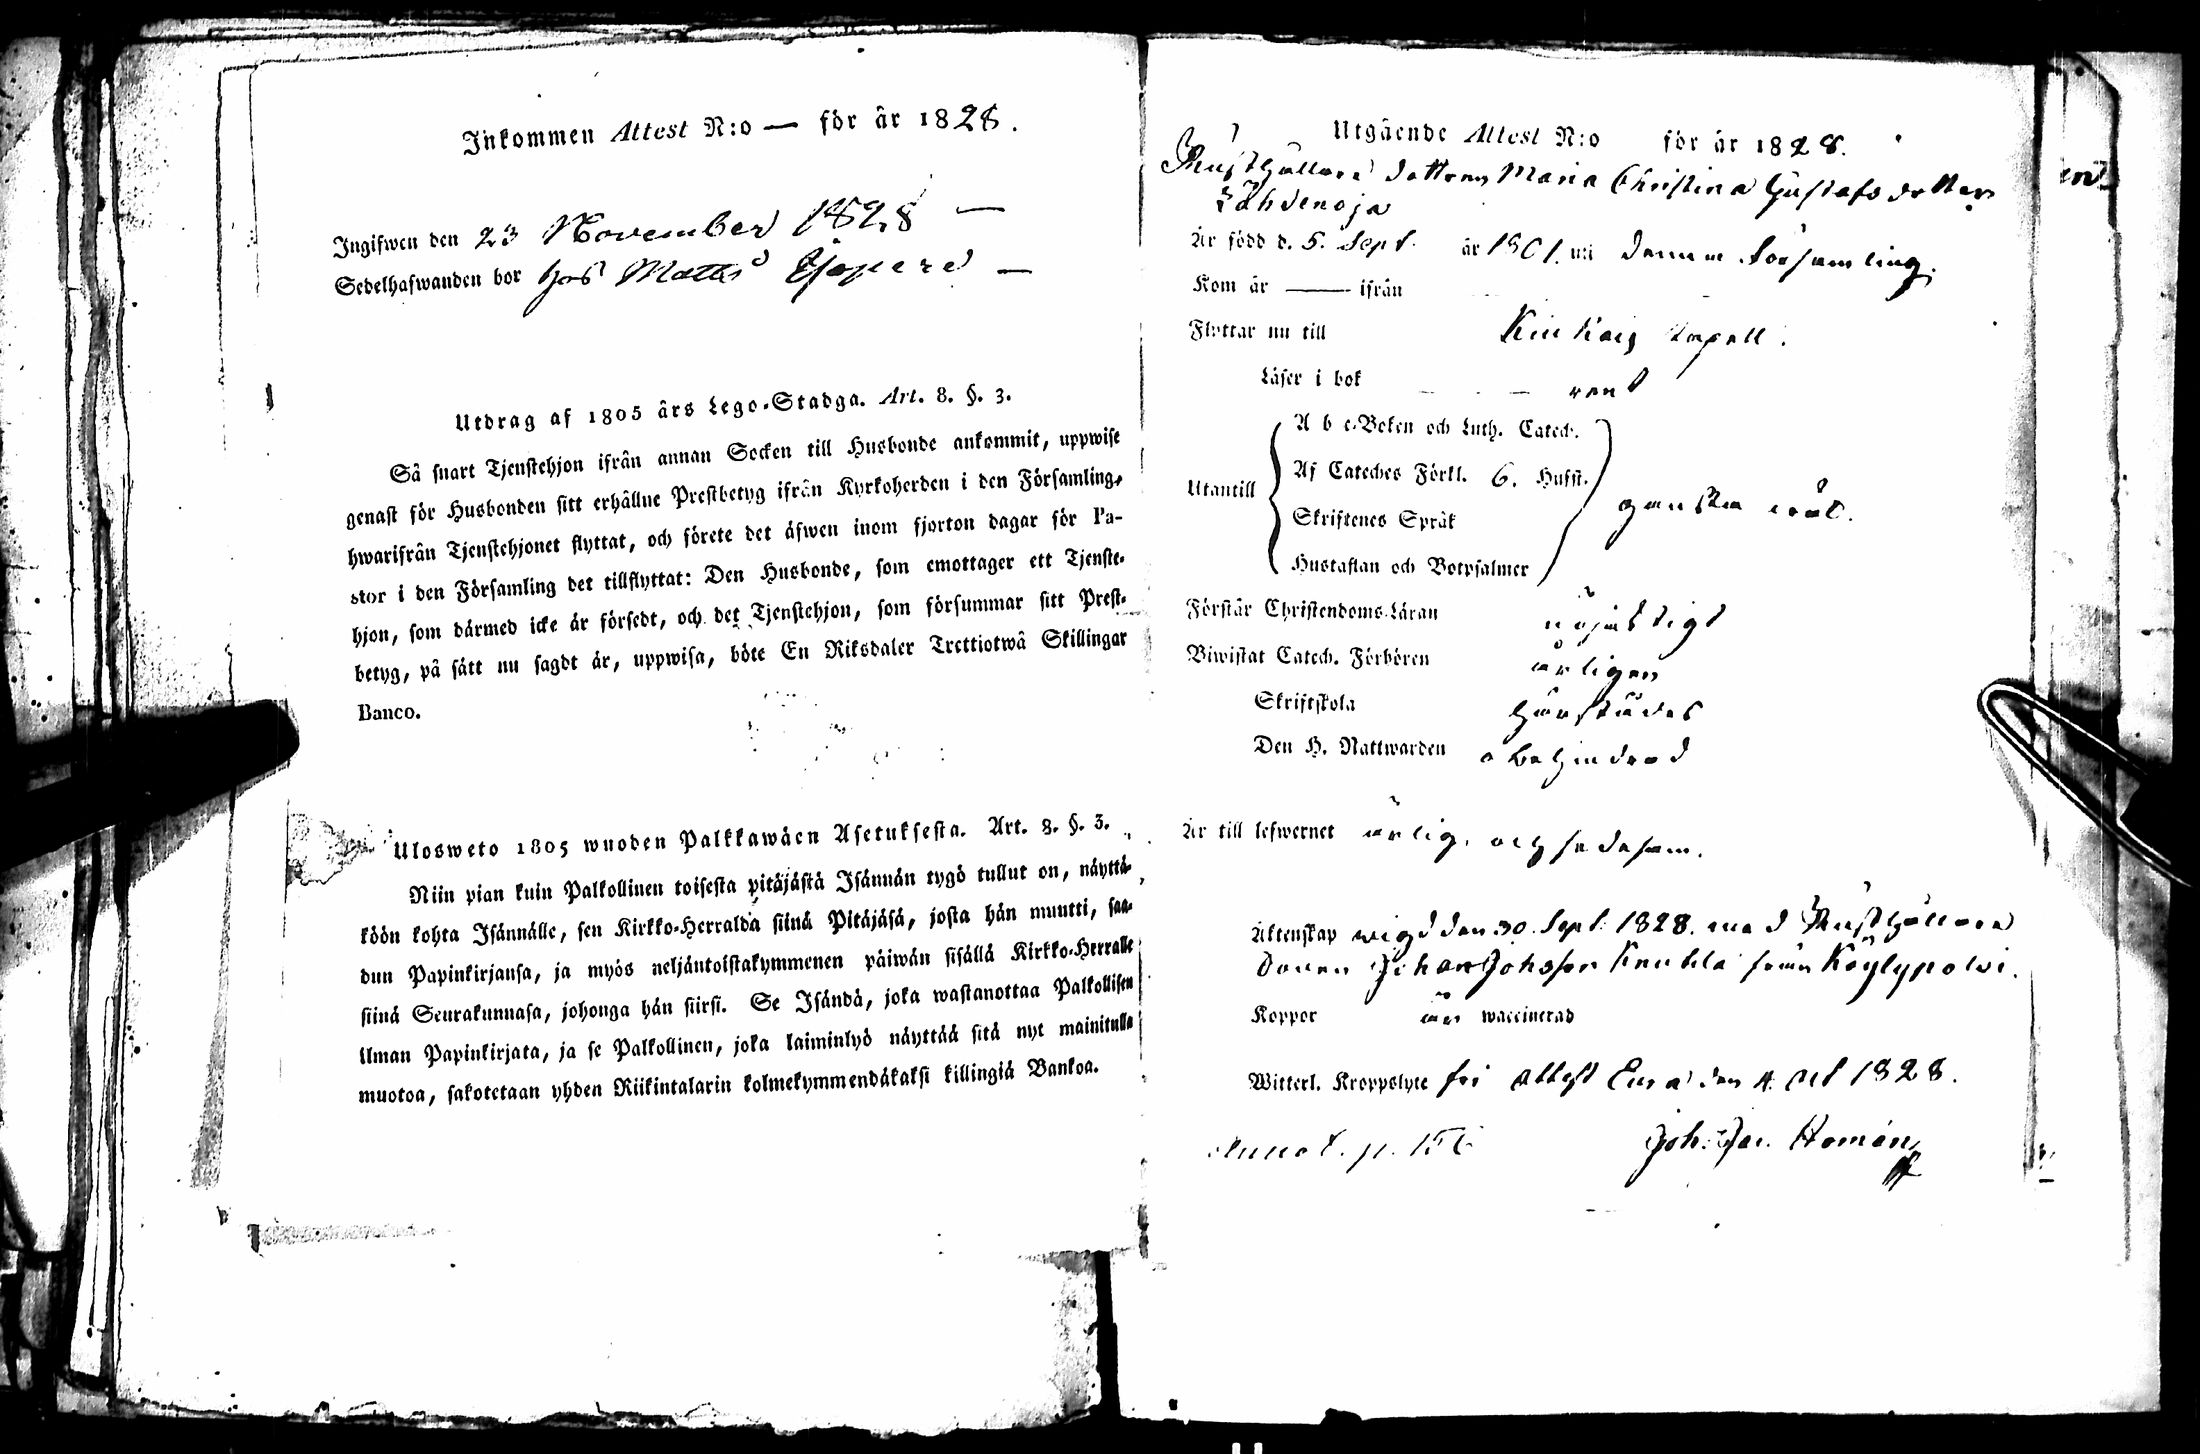 Inkommen Attest N:o — för år 1828.
Ingifwen den 23 November 1828 —
Sedelhafwanden bor hos Matts —
Utdrag af 1805 års Lego-Stadga. Art. 8. §. 3.
Så snart Tjenstehjon ifrån annan Socken till Husbonde ankommit, uppwise
genast för Husbonden sitt erhållne Prestbetyg ifrån Kyrkoherden i den Församling,
hwarifrån Tjenstehjonet flyttat, och förete det äfwen inom fjorton dagar för Pa-
stor i den Församling det tillflyttat: Den Husbonde, som emottager ett Tjenste-
hjon, som därmed icke är försedt, och det Tjenstehjon, som försummar sitt Prest-
betyg, på sätt nu sagdt är, uppwisa, böte En Riksdaler Trettiotwå Skillingar
Banco.
Ulosweto 1805 wuoden Palkkawäen Asetuksesta. Art. 8. §. 3.
Niin pian kuin Palkollinen toisesta pitäjästä Isännän tygö tullut on, näyttä-
köön kohta Isännälle, sen Kirkko-Herralda siinä Pitäjäsä, josta hän muutti, saa-
dun Papinkirjansa, ja myös neljäntoistakymmenen päiwän sisällä Kirkko-Herralle
siinä Seurakunnasa, johonga hän siirsi. Se Isändä, joka wastanottaa Palkollisen
ilman Papinkirjata, ja se Palkollinen, joka laiminlyö näyttää sitä nyt mainitulla
muotoa, sakotetaan yhden Riikintalarin kolmekymmendäkaksi killingiä Bankoa.
Utgående Attest N:o för år 1828.
Rusthållare dottren Maria Christina Gustafsdotter
Lähdenoja
Är född d. 5. Sept. år 1801. uti denna församling.
Kom år — ifrån
Flyttar nu till Kiukais Capell.
Läser i bok — — rent
A b c-Boken och Luth. Catech.
Af Cateches Förkl. 6. Hufst.
Utantill ganska wäl.
Skriftenes Språk
Hustaflan och Botpsalmer
Förstår Christendoms-Läran nöjaktigt
Biwistat Catech. Förhören årligen
Skriftskola härstädes
Den H. Nattwarden obehindrad
Är till lefwernet ärlig, och sedesam.
Äktenskap wigd den 30. Sept. 1828. med Rusthållare
Sonen Johan Johsson från Köylypolwi.
Koppor är waccinerad
Witterl. Kroppslyte fri attest Eura den 4. Oct 1828.
Annot. p.
Joh. Jac. Homén